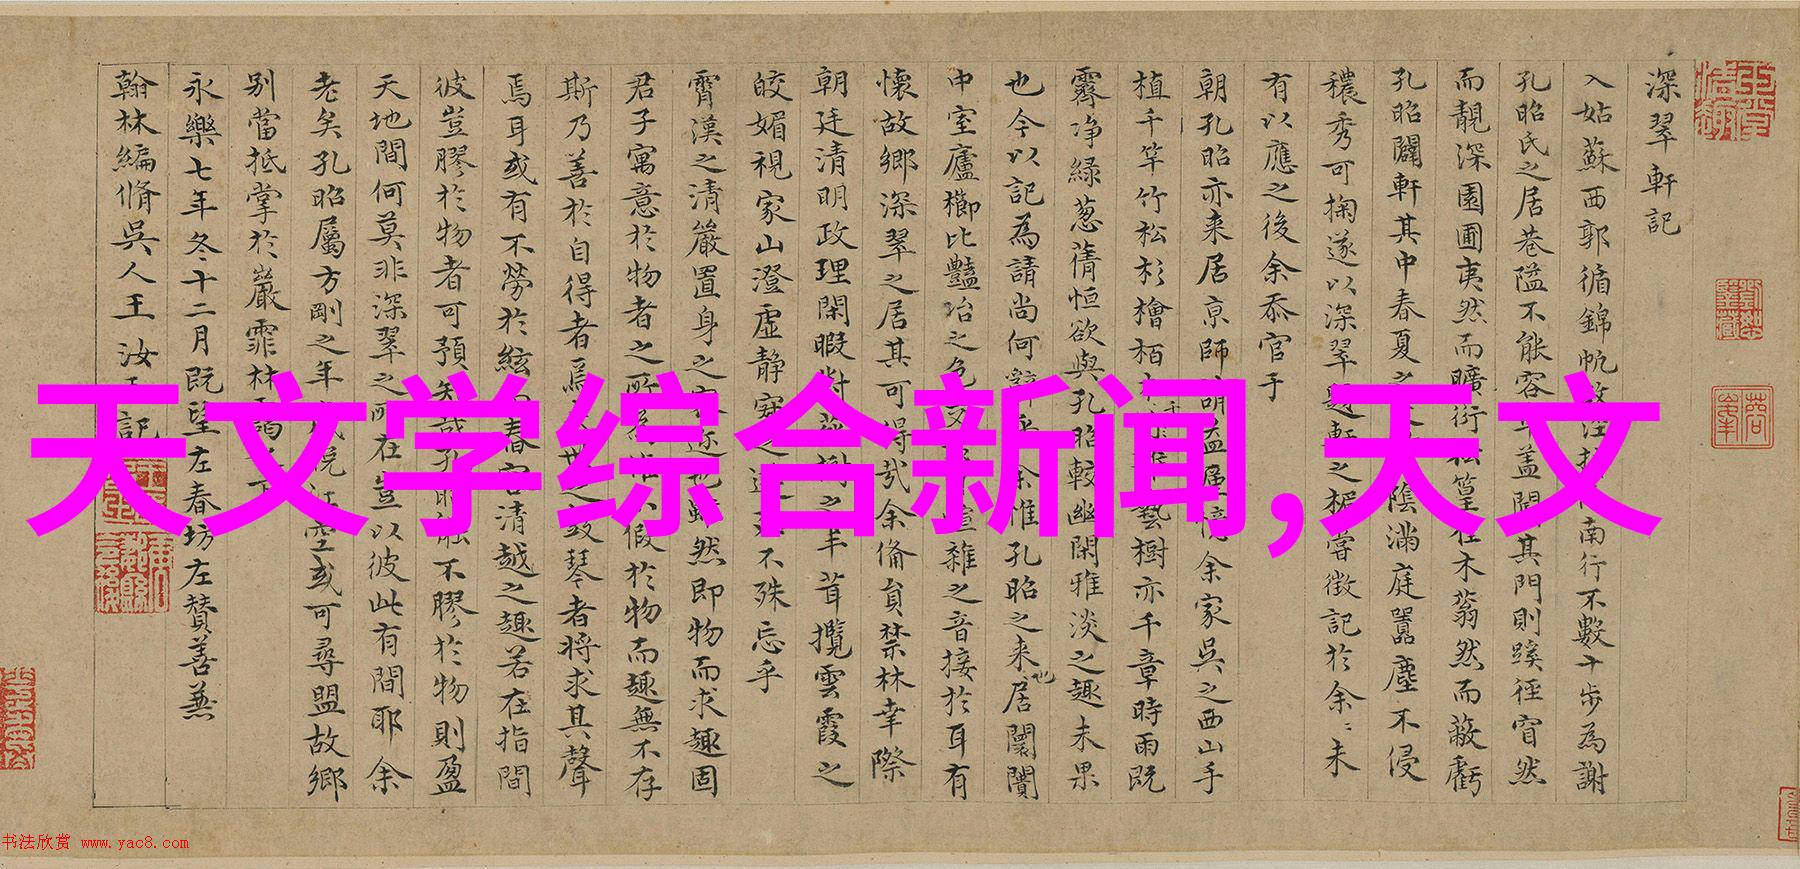 深翠軒記
入姑蘇西郭循錦帆
南行不數十步為謝
孔昭氏之居巷隘不能容
盖閴其門則蹊徑窅然
而靚深園圃夷然而曠衍
木蓊然而蔽虧
孔昭闢軒其中春夏之
陰滿庭囂塵不侵
穠秀可掬遂以深翠題軒之楣嘗徵記於余未
有以應之後余忝官于
朝孔昭亦来居京師
余家吳之西山手
植千竿竹松杉檜栢
藝樹亦千章時雨既
霽净緑葱蒨恒欲與孔昭較幽閑雅淡之趣未果
也今以記為請尚何辭
余惟孔昭之来居闤闠
中室廬櫛比豔冶之色
喧雜之音接於耳有
懷故鄉深翠之居其可得哉余俻員禁林幸際
朝廷清明政理閑暇
之半茸攬雲霞之
皎媚視家山澄虛静寂之
不殊忘乎
霄漢之清嚴置身之
然即物而求趣固
君子寓意於物者之所
假於物而趣無不存
斯乃善於自得者焉
之鼓琴者将求其聲
焉耳或有不勞於絃
清越之趣若在指間
彼豈膠於物者可預知哉孔昭能不膠於物則盈
天地間何莫非深翠之所在豈以彼此有間耶余
老矣孔昭屬方剛之年
或可尋盟故鄉
别當抵掌於巖霏林
永樂七年冬十二月既望左春坊左贊善兼
翰林編脩吳人王汝玉記
天文学综合新闻,天文
书法欣赏 www.yac8.com